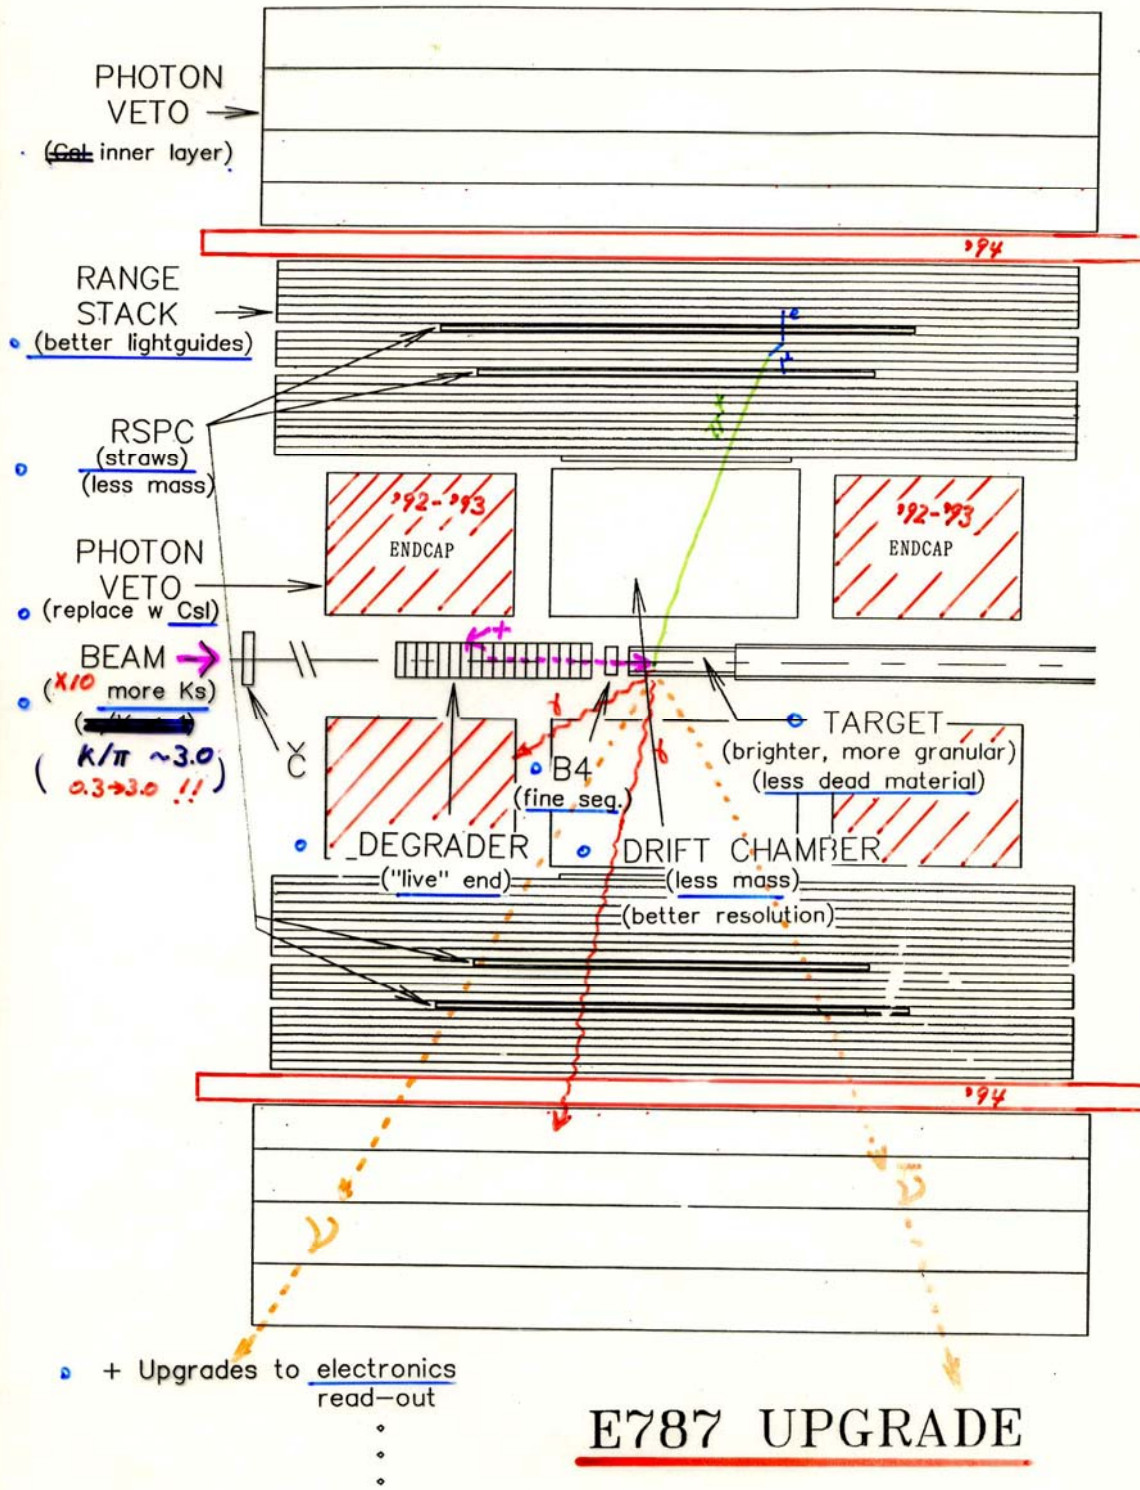 PHOTON
VETO
inner layer)
'94
RANGE
STACK
(better lightguides)
e
μ
π
RSPC
(straws)
(less mass)
'92-'93
ENDCAP
'92-'93
ENDCAP
PHOTON
VETO
(replace w CsI)
BEAM
(X10 more Ks)
(K/π ~3.0)
0.3→3.0 !!
Č
γ
γ
TARGET
(brighter, more granular)
(less dead material)
B4
(fine seg.)
DEGRADER
("live" end)
DRIFT CHAMBER
(less mass)
(better resolution)
'94
ν
ν
+ Upgrades to electronics
read-out
E787 UPGRADE